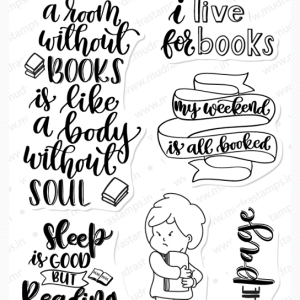 a room
without
BOOKS
is like
a body
without
SOUL
i live
for books
my weekend
is all booked
Sleep
is GOOD
BUT
Reading
THE page